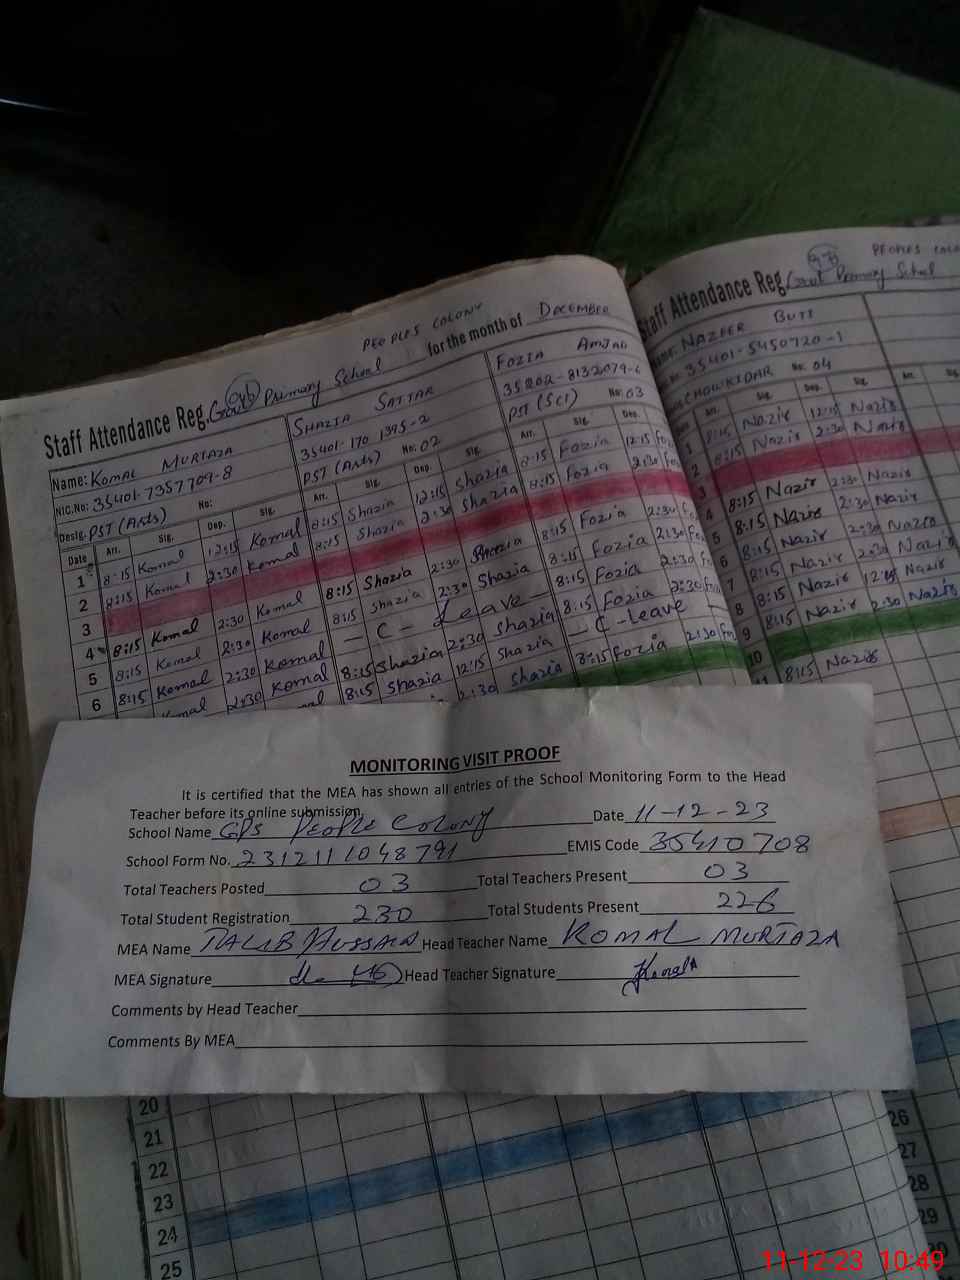 PEOPLES COLONY
Staff Attendance Reg. Govt Primary School for the month of DECEMBER
Name: KOMAL MURTAZA
NIC.No: 35401-7357709-8
Desig. PST (Arts) No:
SHAZIA SATTAR
35401-170 1395-2
PST (Arts) No: 02
FOZIA AMJAD
35202-8132079-6
PST (SCI) No: 03
Date Arr. Sig. Dep. Sig. Arr. Sig. Dep. Sig. Arr. Sig. Dep.
1 8:15 Komal 12:15 Komal 8:15 Shazia 12:15 Shazia 8:15 Fozia 12:15
2 8:15 Komal 2:30 Komal 8:15 Shazia 2:30 Shazia 8:15 Fozia 2:30
3
4 8:15 Komal 2:30 Komal 8:15 Shazia 2:30 Shazia 8:15 Fozia 2:30
5 8:15 Komal 2:30 Komal 8:15 Shazia 2:30 Shazia 8:15 Fozia 2:30
6 8:15 Komal 2:30 Komal — C - Leave — 8:15 Fozia 2:30
2:30 Komal 8:15 Shazia 2:30 Shazia 8:15 Fozia 2:30
8:15 Shazia 12:15 Shazia — C - Leave —
2:30 Shazia 8:15 Fozia 2:30
PEOPLES COLO
Staff Attendance Reg. Govt Primary School
Name: NAZEER BUTT
35401-5450720-1
CHOWKIDAR No: 04
Arr. Sig. Dep. Sig. Arr. Sig.
1 8:15 Nazir 12:15 Nazir
2 8:15 Nazir 2:30 Nazir
3
4 8:15 Nazir 2:30 Nazir
5 8:15 Nazir 2:30 Nazir
6 8:15 Nazir 2:30 Nazir
7 8:15 Nazir 2:30 Nazir
8 8:15 Nazir 12:15 Nazir
9 8:15 Nazir 2:30 Nazir
10
11 8:15 Nazir
MONITORING VISIT PROOF
It is certified that the MEA has shown all entries of the School Monitoring Form to the Head
Teacher before its online submission.
School Name GPS PEOPLE COLONY Date 11-12-23
School Form No. 2312111048791 EMIS Code 35410708
Total Teachers Posted 03 Total Teachers Present 03
Total Student Registration 230 Total Students Present 226
MEA Name TALIB HUSSAIN Head Teacher Name KOMAL MURTAZA
MEA Signature Head Teacher Signature Komal
Comments by Head Teacher
Comments By MEA
20
21
22
23
24
25
26
27
28
29
30
11-12-23 10:49